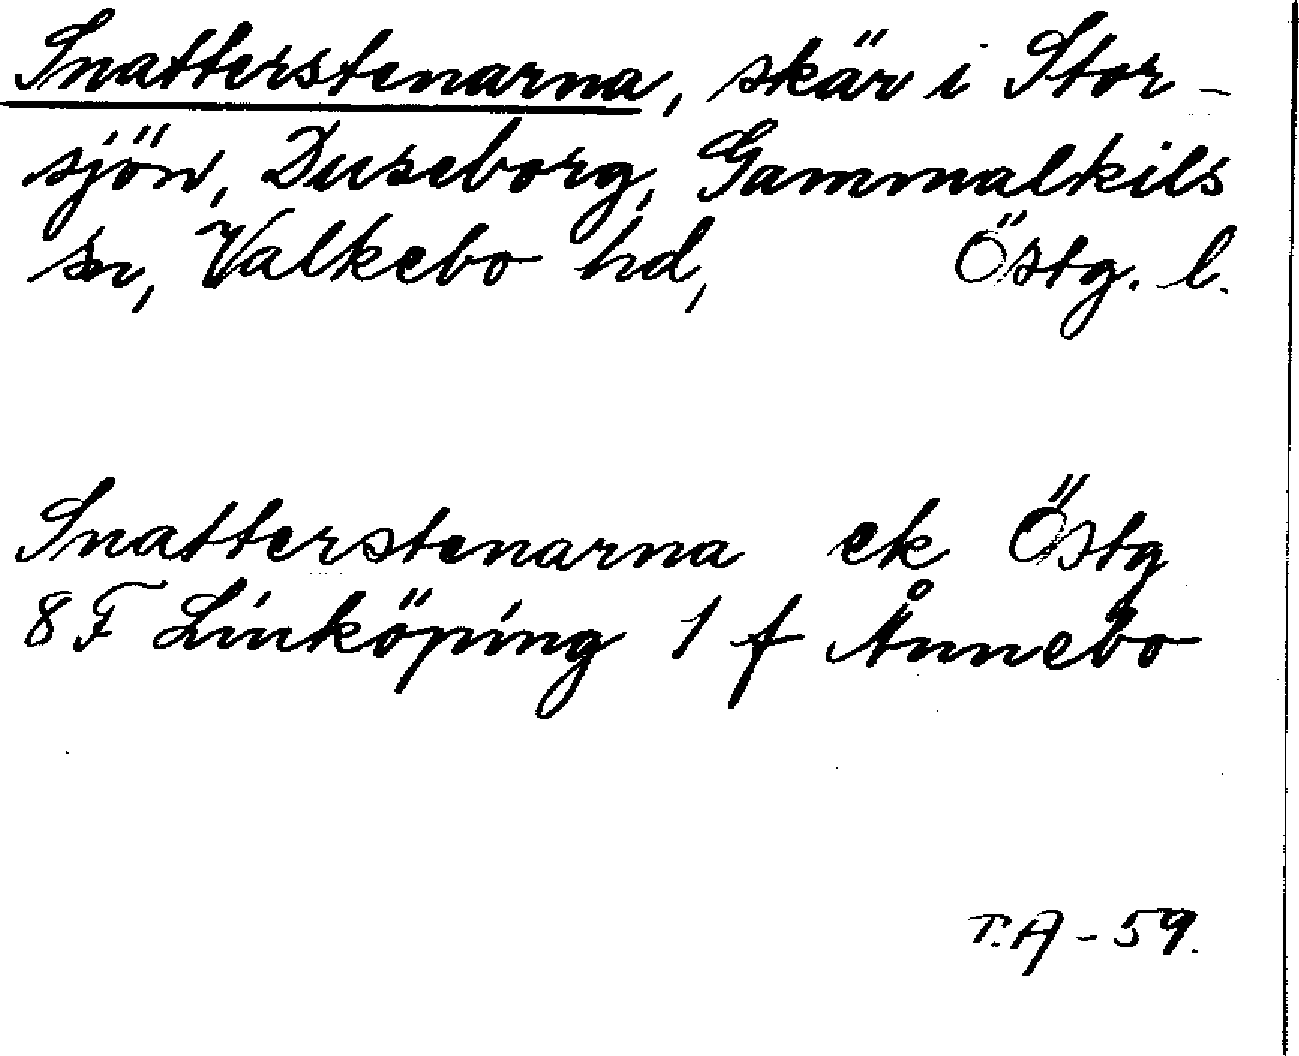 Snatterstenarna, skär i Stor-
sjön, Duseborg, Gammalkils
sn, Valkebo hd, Östg. l.
Snatterstenarna ek Östg
8F Linköping 1 f Ånnebo
T.A - 59.